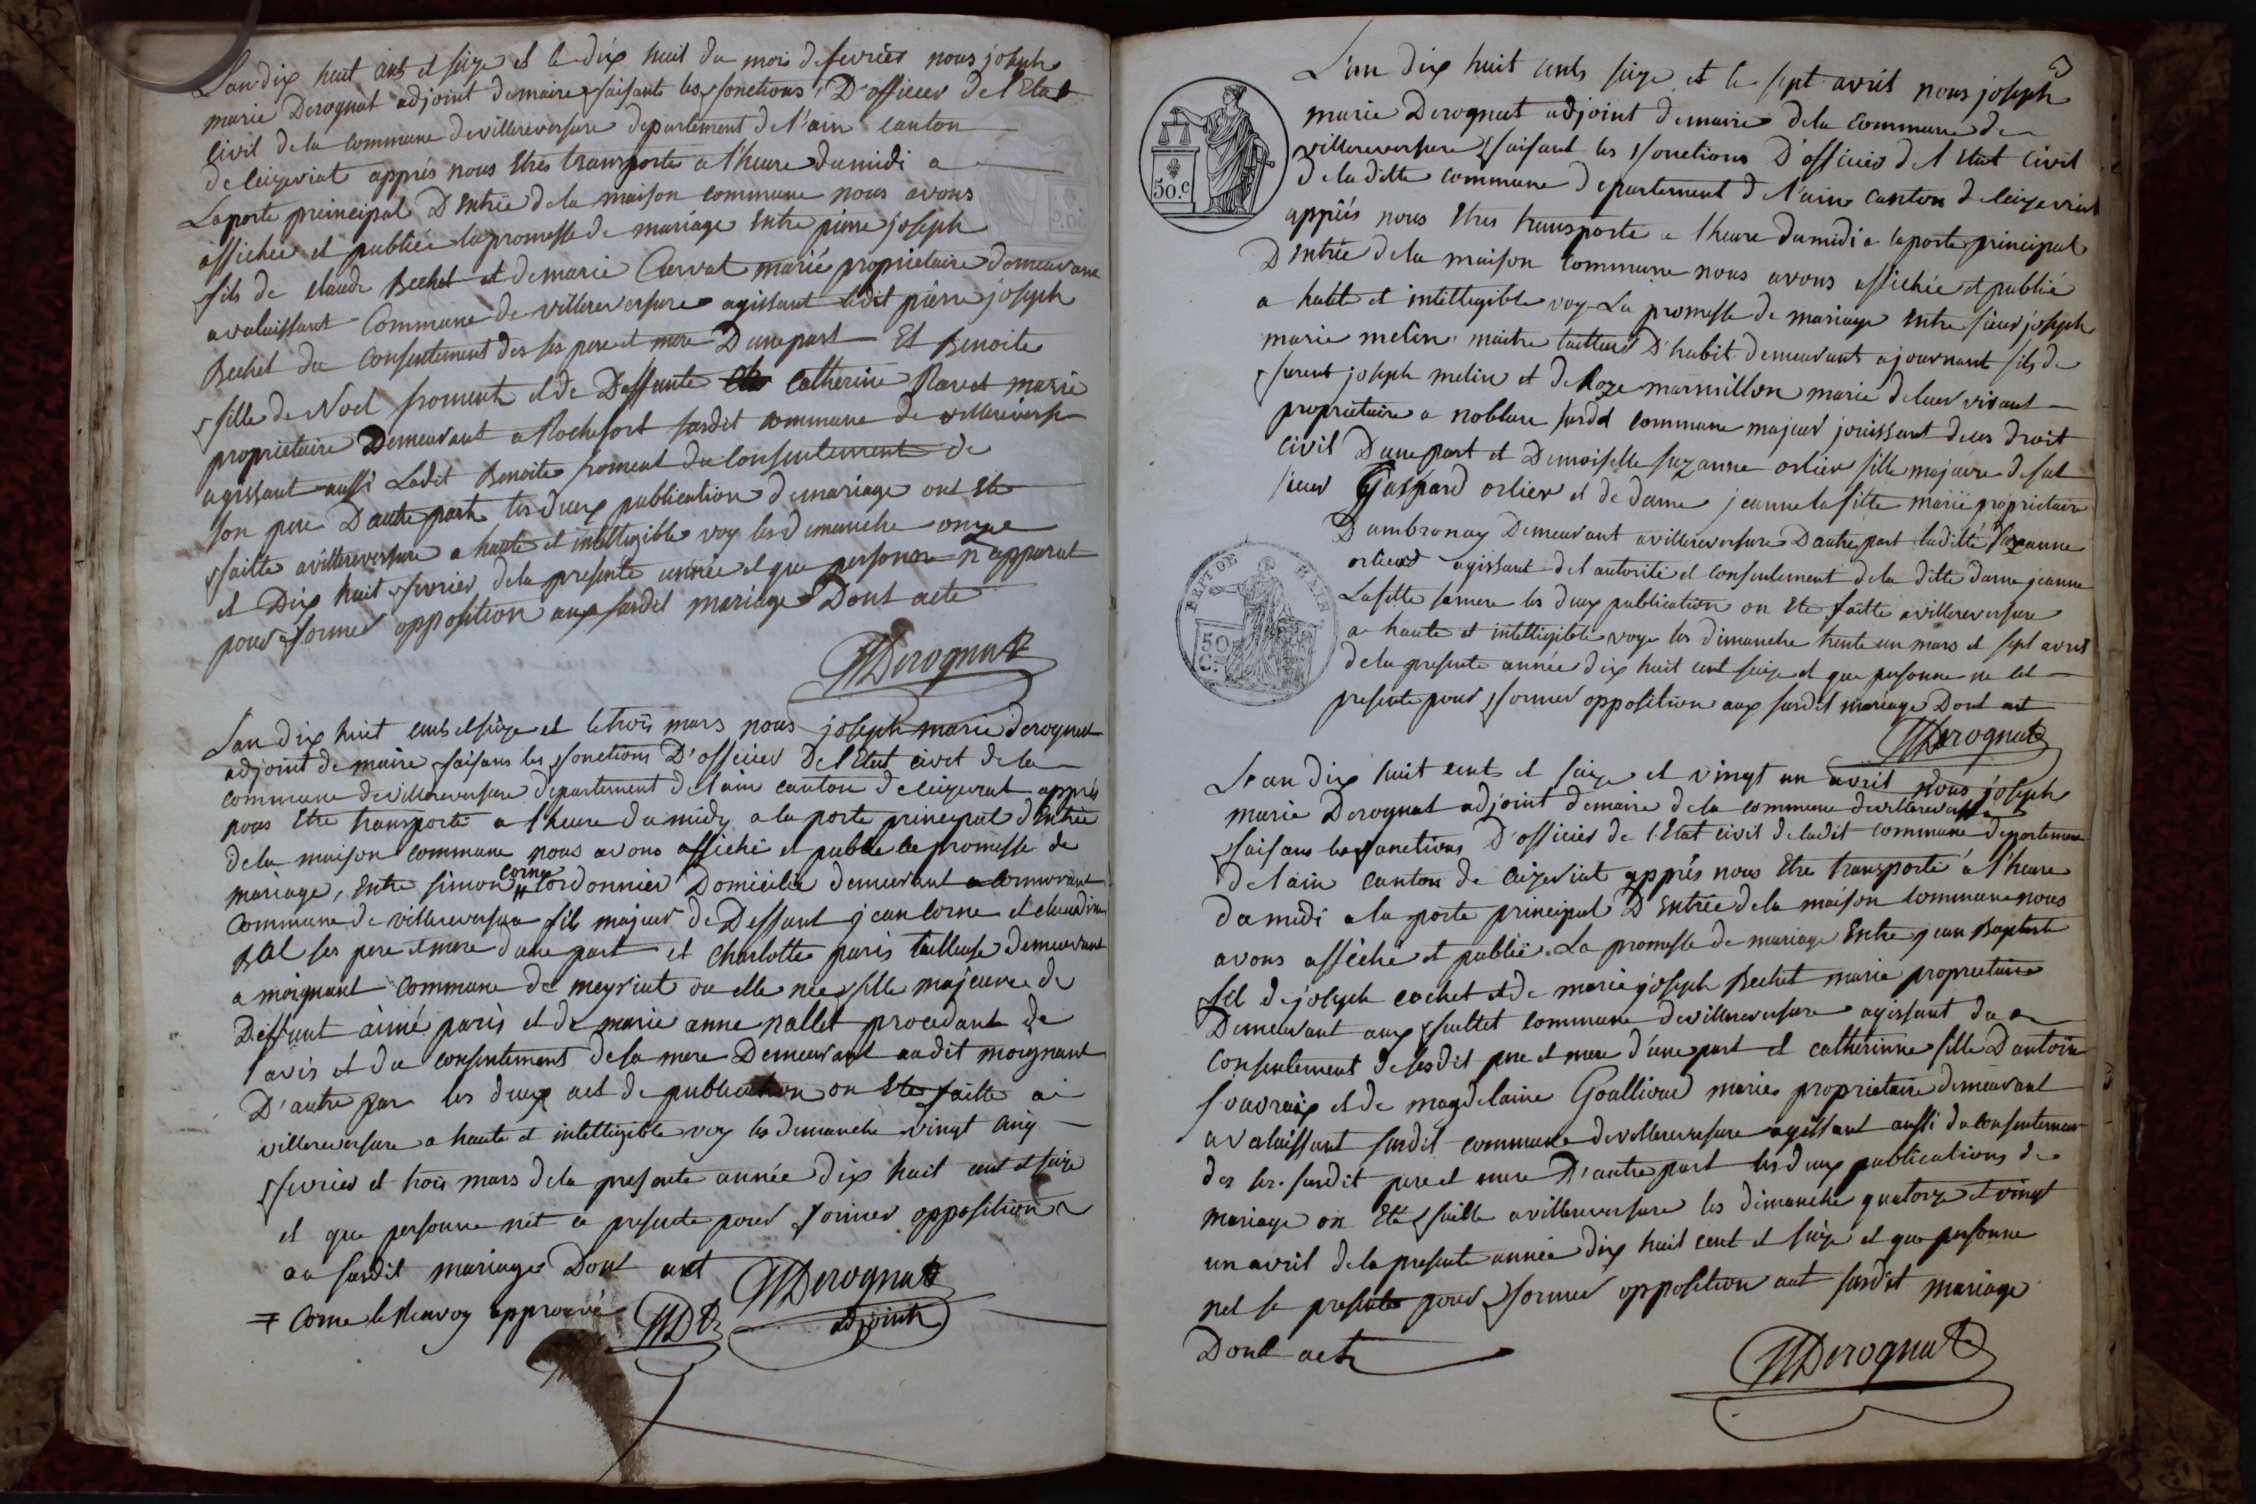 L'an dix huit cents et seize et le dix huit du mois de fevrier nous joseph
marie Derognat adjoint demaire faisants les fonctions D'officier de l'Etat
civil de la commune devillereversure departement de l'ain canton
de ceizeriat apprés nous Etres transporte a l'heure dumidi a
Laporte preincipal D'Entrée dela maison commune nous avons
affichée et publiée lapromesse de mariage Entre pierre joseph
fils de claude Bechet et demarie Chervat marié proprietaire Demeurant
avalaissant Commune de villereversure agissant Ledit pierre joseph
Bechet du consentement des ses pere et mere Dunepart Et Benoite
fille de Noel froment et de Deffunte Catherine Ravet marie
proprietaire Demeurant a Rochefort susdit commune de villereversure
agissant aussi Ladit Benoite froment du Consentement de
son pere Dautre part les deux publication demariage ont Ete
faitte avillereversure a haute et intelligible voy les dimanche onze
et Dix huit fevrier dela presente année et que personne n'apparut
pour former opposition aux susdit mariage Dont acte
Derognat
L'an dix huit cents et seize et le trois mars nous joseph marie derognat
adjoint de maire faisans les fonctions D'officier De l'Etat civil de la
commune devillereversure departement de l'ain canton de ceizeriat apprés
nous Etre transporté a l'heure du midy a la porte principal d'Entrée
dela maison commune nous avons affiché et publié la promesse de
mariage, Entre simon corne Cordonnier Domicilié demeurant
commune de villereversure fils majeur de Deffunt jean Corne et claudine
BAL ses pere et mere dune part et charlotte paris tailleuse demeurant
a moignant commune de meyriat ou elle nee fille majeure de
Deffunt aimé paris et de marie anne nallet procedant de
l'avis et du consentement de sa mere Demeurant audit moignant
D'autre par les deux act de publication on Ete faitte a
villereversure a haute et intelligible voy les dimanche vingt cinq
fevrier et trois mars dela presente année dix huit cent et seize
et que personne net ce presente pour former opposition
au susdit mariage Dont act Derognat
= Corne le Renvoy approuvé JMD adjoint
3
L'an dix huit cents seize et le sept avril nous joseph
marie Derognat adjoint demaire dela commune de
villereversure faisant les fonctions D'officier de l'Etat civil
de la ditte commune departement de l'ain canton de ceizeriat
appriés nous Etres transporte a l'heure dumidi a laporte principal
D'Entrée dela maison commune nous avons affichée et publié
a haute et intelligible voy La promesse de mariage Entre sieur joseph
marie melin maitre tailleur D'habit demeurant ajournant fils de
furent joseph melin et de Roze marmillon marie deleur vivant
proprietaire a noblan susdit commune majeur jouissant deces droit
civil Dune part et Demoiselle suzanne orlier fille majeure defut
sieur Gaspard orlier et de dame jeanne lafitte marié proprietaire
Dambronay Demeurant avillereversure Dautre part laditte suzanne
orlier agissant del autorité et consentement dela ditte dame jeanne
Lafitte samere les deux publication on Ete faitte avillereversure
a haute et intelligible voye les dimanche trente un mars et sept avril
dela presente année dix huit cent seize et que personne ne cet
presente pour former opposition aux susdit mariage Dont act
Derognat
50.c
DEPT DE L'AIN
50
C.
L'an dix huit cents et seize et vingt un avril nous joseph
marie Derognat adjoint demaire dela commune devillereversure
faisans les fonctions D'officier de l'Etat civil deladit commune departement
de l'ain canton de ceizeriat apprés nous Etre transporté à l'heure
du midi a la porte principal D'Entrée dela maison commune nous
avons affiché et publié La promesse de mariage Entre jean Baptiste
fil de joseph cochet et de marie joseph Bechet marie proprietaire
Demeurant aux feuillet commune devillereversure agissant du
consentement desesdit pere et mere d'une part et catherinne fille D'antoine
souvraix et de magdelaine Goallioud marie proprietaire demeurant
avalaissant susdit commune devillereversure agissant aussi duconsentement
des ses susdit pere et mere D'autre part les deux publications de
mariage on Eté faitte avillereversure les dimanche quatorze et vingt
un avril dela presente année dix huit cent et seize et que personne
net se presente pour former opposition aut susdit mariage
Dont acte
Derognat